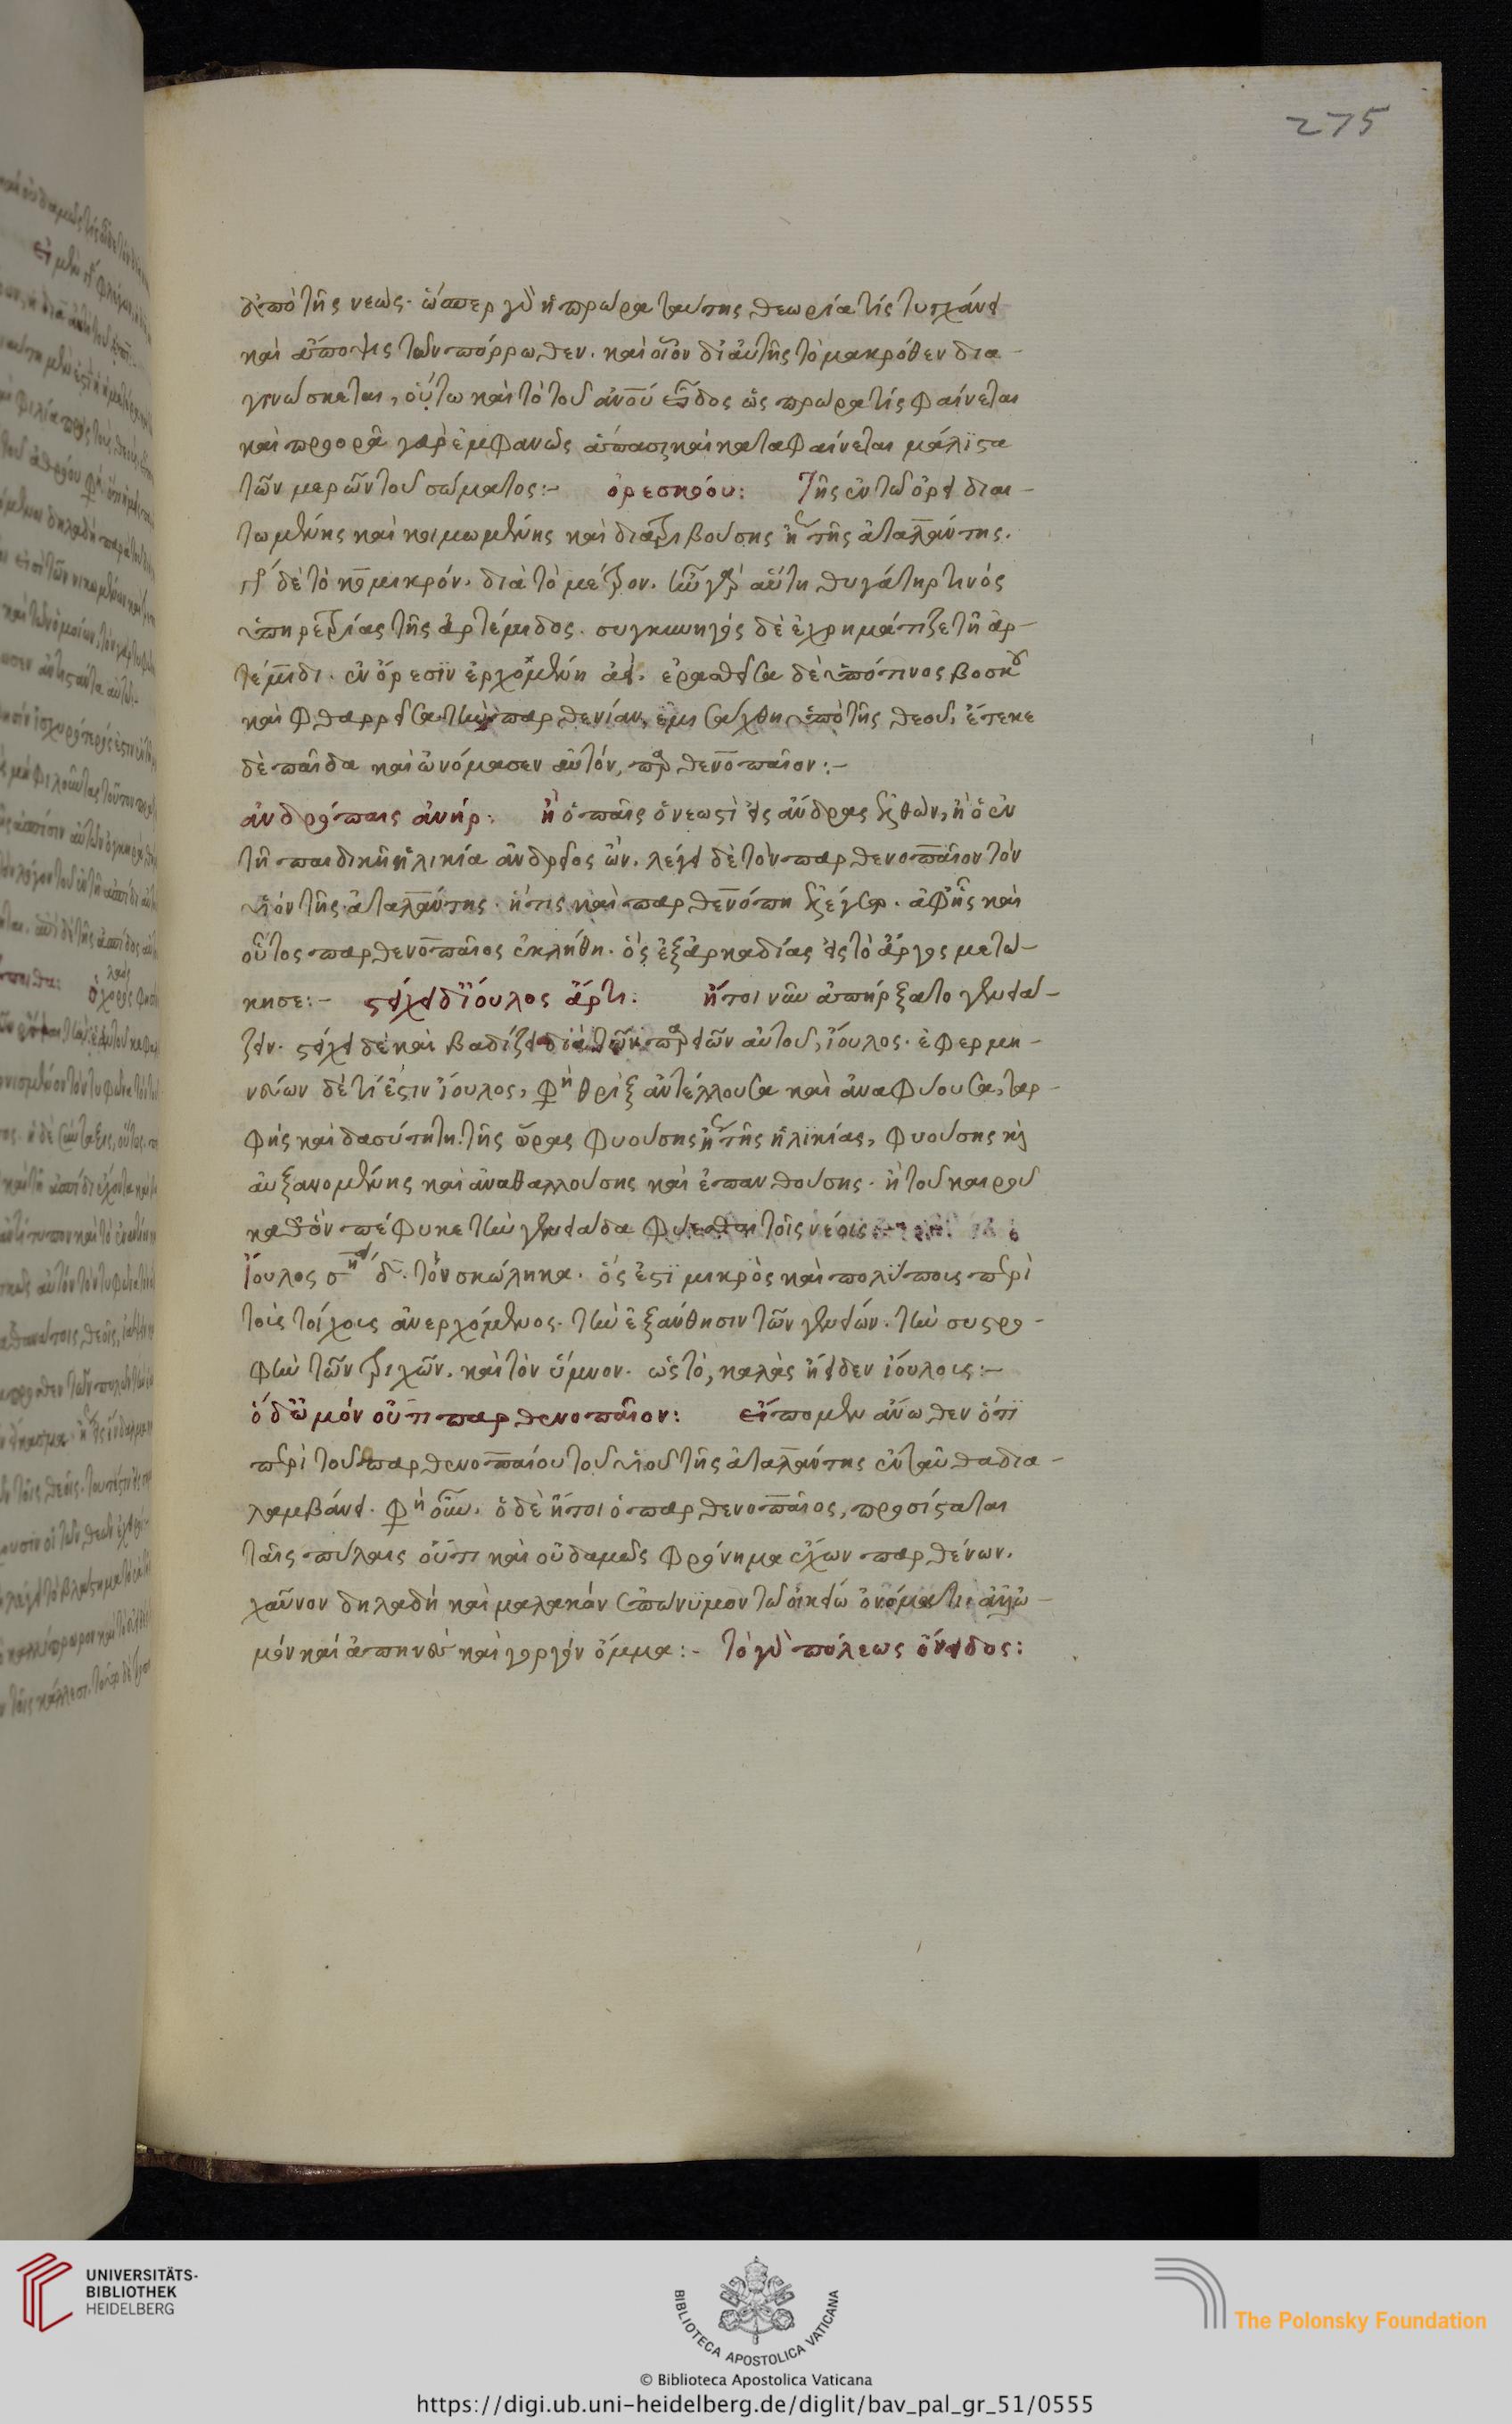 275
ἀπὸ τῆς νεώς. ὥσπερ γὰρ ἡ πρῶρα ταύτης θεωρία τίς τυγχάνει
καὶ ἄποψις τῶν πόρρωθεν. καὶ οἷον δι' αὐτῆς τὸ μακρόθεν δια-
γινώσκεται, οὕτω καὶ τὸ τοῦ ἀνου εἶδος ὡς πρῶρα τίς φαίνεται
καὶ προορᾶ γὰρ ἐμφανῶς ἅπασι καὶ καταφαίνεται μάλιστα
τῶν μερῶν τοῦ σώματος:- ὀρεσκόου: Τῆς ἐν τῶ ὄρει διαι-
τωμένης καὶ κοιμωμένης καὶ διατριβούσης ἤτοι τῆς ἀταλάντης.
τὸ μικρόν. διὰ τὸ μέτρον. ἦν γὰρ αὕτη θυγάτηρ τινός
ὑπηρετρίας τῆς ἀρτέμιδος. συγκυνηγός δὲ ἐχρημάτιζε τῆ ἀρ-
τέμιδι. ἐν ὄρεσιν ἐρχομένη ἀεί. ἐρασθεῖσα δὲ ὑπό τινος βοσκοῦ
καὶ φθαρεῖσα τὴν παρθενίαν, ὑπὸ τῆς θεοῦ, ἔτεκε
δὲ παῖδα καὶ ὠνόμασεν αὐτόν, παρθενοπαῖον:-
ἀνδρόπαις ἀνήρ: ἢ ὁ παῖς ὁ νεωστὶ εἰς ἄνδρας ἐλθών, ἢ ὁ ἐν
τῆ παιδικῆ ἡλικία ἀνδρεῖος ὤν. λέγει δὲ τὸν παρθενοπαῖον τὸν
υἱὸν τῆς ἀταλάντης. ἥτις καὶ παρθενόπη ἐλέγετο. ἀφ' ἧς καὶ
οὗτος παρθενοπαῖος ἐκλήθη. ὃς ἐξ ἀρκαδίας εἰς τὸ ἄργος μετώ-
κησε:- στείχει δ' ἴουλος ἄρτι: ἤτοι νῦν ἀπήρξατο γενειά-
ζειν. στείχει δὲ καὶ βαδίζει διὰ τῶν παρειῶν αὐτοῦ, ἴουλος. ἐφερμη-
νεύων δὲ τί ἐστιν ἴουλος, φησὶ θρὶξ ἀντέλλουσα καὶ ἀναφύουσα, ταρ-
φὴς καὶ δασύτητι. τῆς ὥρας φυούσης ἤτοι τῆς ἡλικίας, φυούσης καὶ
αὐξανομένης καὶ ἀναθαλλούσης καὶ ἐπανθούσης. ἢ τοῦ καιροῦ
καθ' ὃν πέφυκε τὴν γενειάδα φύεσθαι τοῖς νέοις
Ἴουλος σημαίνει δ. τὸν σκώληκα. ὅς ἐστι μικρὸς καὶ πολύπους περὶ
τοῖς τοίχοις ἀνερχόμενος. τὴν ἐξάνθησιν τῶν γενείων. τὴν συστρο-
φὴν τῶν τριχῶν. καὶ τὸν ὕμνον. ὡς τό, καλὰς ἤειδεν ἰούλους:-
ὁ δ' ὠμόν οὔτι παρθενοπαῖον: εἴπομεν ἄνωθεν ὅτι
περὶ τοῦ παρθενοπαίου τοῦ υἱοῦ τῆς ἀταλάντης ἐνταῦθα δια-
λαμβάνει. φησὶν οὖν. ὁ δὲ ἤτοι ὁ παρθενοπαῖος, προσίσταται
ταῖς πύλαις οὔτι καὶ οὐδαμῶς φρόνημα ἔχων παρθένων.
χαῦνον δηλαδή καὶ μαλακόν ἐπώνυμον τῶ οἰκείω ὀνόματι ἀλλ' ὠ-
μόν καὶ ἀπηνὲς καὶ γοργόν ὄμμα:- τὸ γὰρ πόλεως ὄνειδος:
UNIVERSITÄTS-
BIBLIOTHEK
HEIDELBERG
BIBLIOTECA APOSTOLICA VATICANA
The Polonsky Foundation
© Biblioteca Apostolica Vaticana
https://digi.ub.uni-heidelberg.de/diglit/bav_pal_gr_51/0555